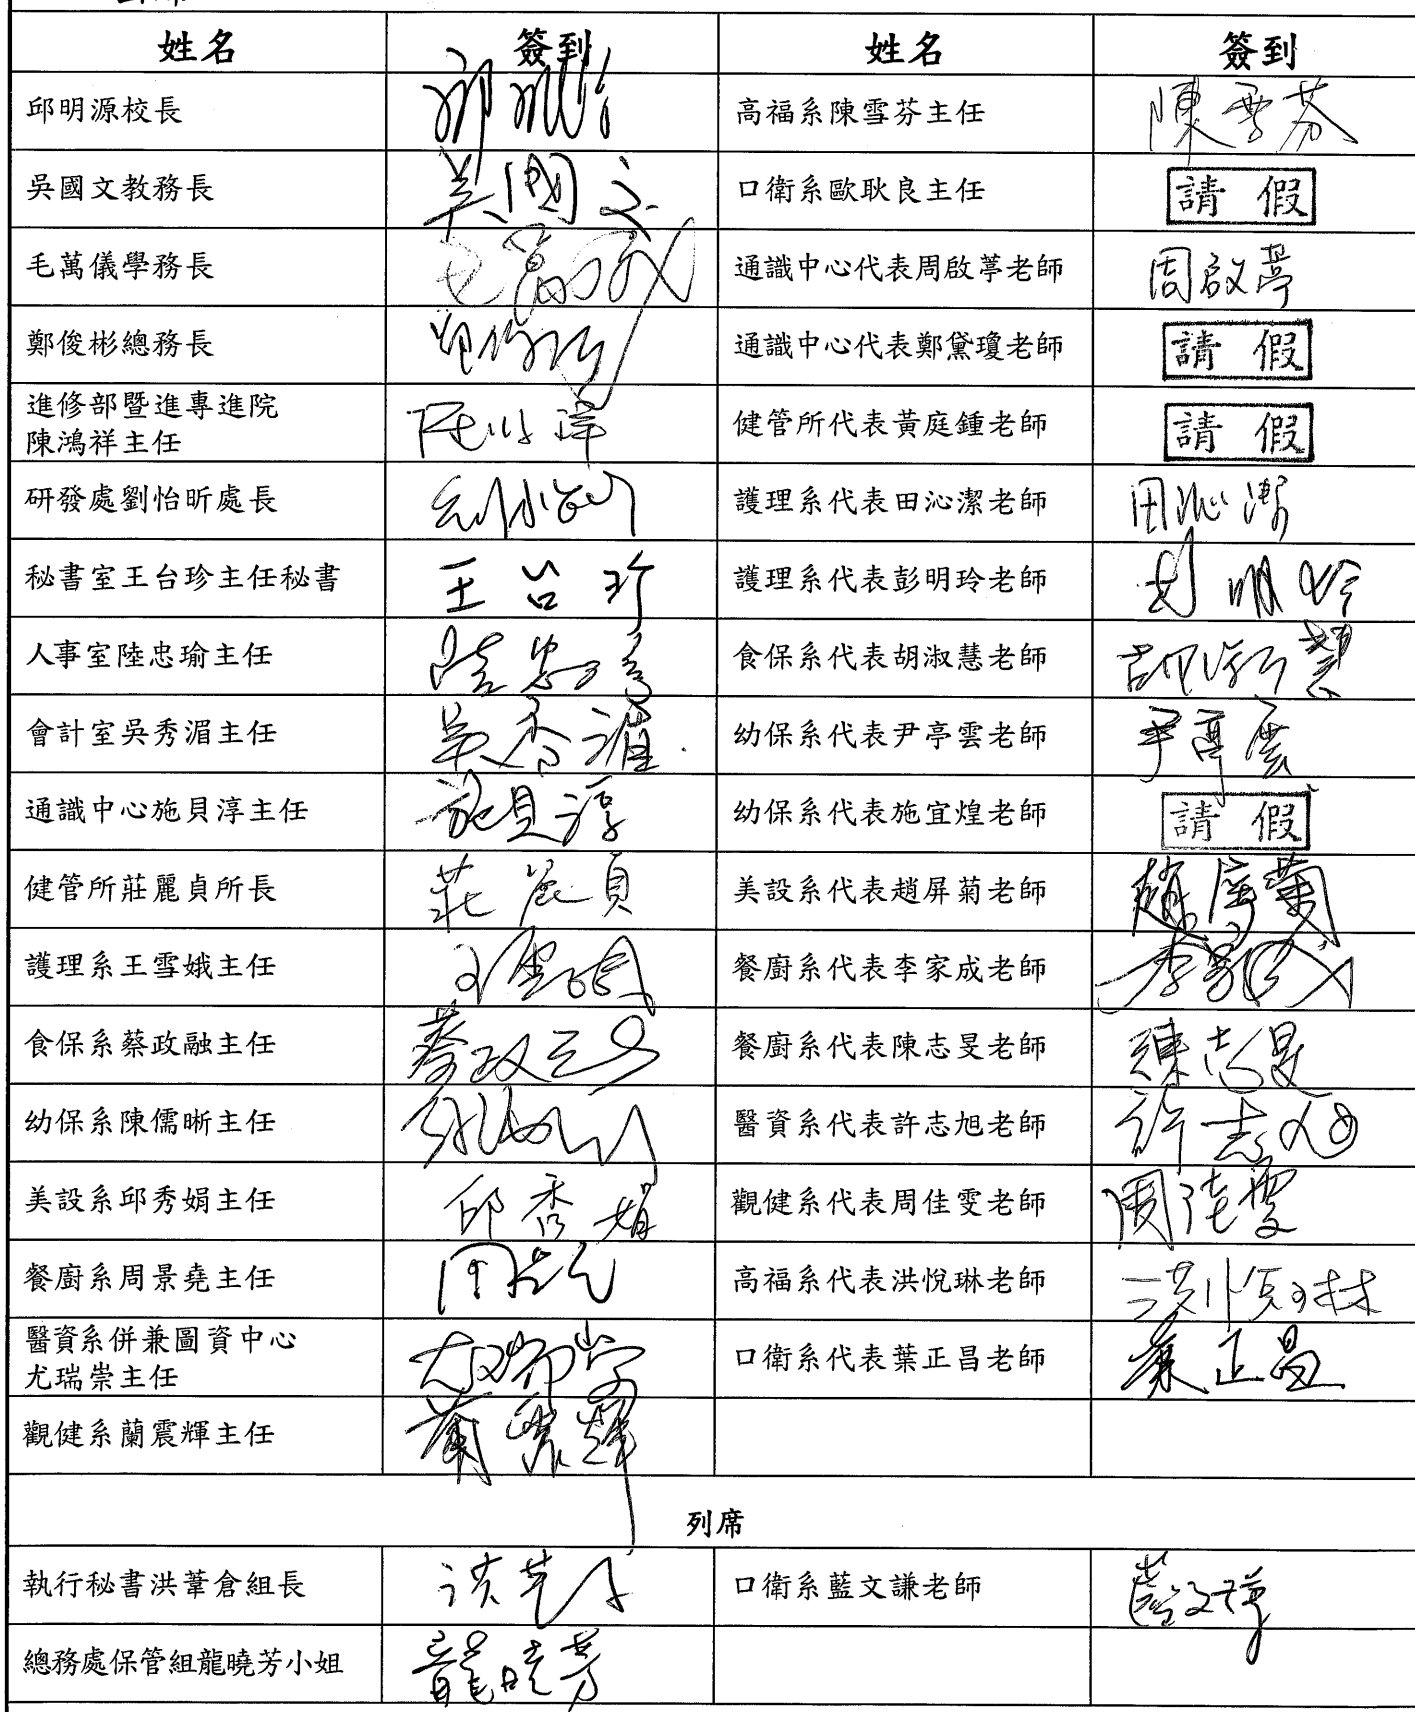 姓名 簽到 姓名 簽到
邱明源校長 高福系陳雪芬主任 陳雪芬
吳國文教務長 吳國文 口衛系歐耿良主任 請 假
毛萬儀學務長 毛萬儀 通識中心代表周啟葶老師 周啟葶
鄭俊彬總務長 通識中心代表鄭黛瓊老師 請 假
進修部暨進專進院
陳鴻祥主任 健管所代表黃庭鍾老師 請 假
研發處劉怡昕處長 劉怡昕 護理系代表田沁潔老師 田沁潔
秘書室王台珍主任秘書 王台珍 護理系代表彭明玲老師 彭明玲
人事室陸忠瑜主任 陸忠瑜 食保系代表胡淑慧老師 胡淑慧
會計室吳秀湄主任 吳秀湄 幼保系代表尹亭雲老師 尹亭雲
通識中心施貝淳主任 施貝淳 幼保系代表施宜煌老師 請 假
健管所莊麗貞所長 莊麗貞 美設系代表趙屏菊老師 趙屏菊
護理系王雪娥主任 王雪娥 餐廚系代表李家成老師 李家成
食保系蔡政融主任 蔡政融 餐廚系代表陳志旻老師 陳志旻
幼保系陳儒晰主任 醫資系代表許志旭老師 許志旭
美設系邱秀娟主任 邱秀娟 觀健系代表周佳雯老師 周佳雯
餐廚系周景堯主任 高福系代表洪悅琳老師 洪悅琳
醫資系併兼圖資中心
尤瑞崇主任 尤瑞崇 口衛系代表葉正昌老師 葉正昌
觀健系蘭震輝主任 蘭震輝
列席
執行秘書洪葦倉組長 口衛系藍文謙老師 藍文謙
總務處保管組龍曉芳小姐 龍曉芳